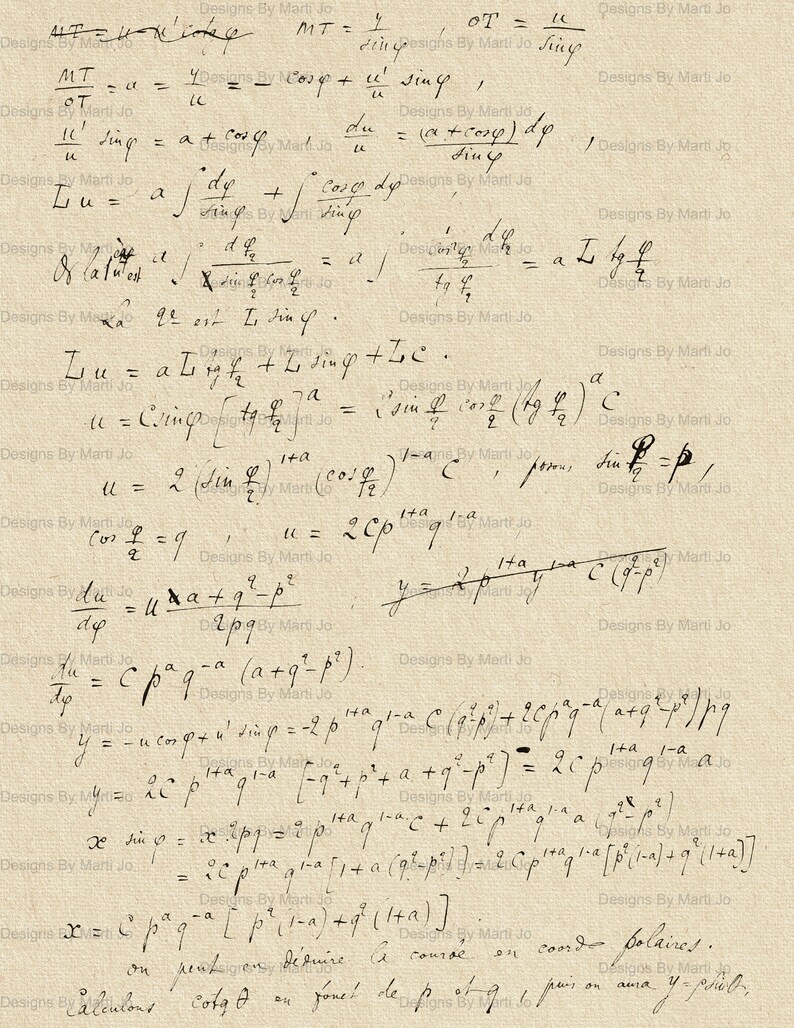 MT = u - u' cotg φ   MT = y/sinφ , OT = u/sinφ
MT/OT = a = y/u = - cosφ + u'/u sinφ ,
u'/u sinφ = a + cosφ , du/u = (a + cosφ) dφ/sinφ ,
L u = a ∫ dφ/sinφ + ∫ cosφ dφ/sinφ ,
Or la 1ère est a ∫ d φ/2 / sin φ/2 cos φ/2 = a ∫ 1/cos² φ/2 d φ/2 / tg φ/2 = a L tg φ/2
La 2e est L sin φ .
L u = a L tg φ/2 + L sin φ + L C .
u = C sinφ [tg φ/2]^a = 2 sin φ/2 cos φ/2 (tg φ/2)^a C
u = 2 (sin φ/2)^1+a (cos φ/2)^1-a C , posons sin φ/2 = p ,
cos φ/2 = q , u = 2Cp^1+a q^1-a
du/dφ = u a + q² - p² / 2pq   y = 2 p^1+a q^1-a C (q²-p²)
du/dφ = C p^a q^-a (a + q² - p²) .
y = - u cosφ + u' sinφ = -2 p^1+a q^1-a C (q²-p²) + 2C p^a q^-a (a+q²-p²) pq
y = 2C p^1+a q^1-a [-q² + p² + a + q² - p²] = 2C p^1+a q^1-a a
x sin φ = x 2pq = 2 p^1+a q^1-a C + 2C p^1+a q^1-a a (q² - p²)
= 2C p^1+a q^1-a [1 + a (q²-p²)] = 2C p^1+a q^1-a [p²(1-a) + q²(1+a)]
x = C p^a q^-a [ p² (1-a) + q² (1+a) ] .
on peut en déduire la courbe en coord polaires .
Calculons cotg θ en fonct de p et q , puis on aura y = ρ sin θ,
Designs By Marti Jo